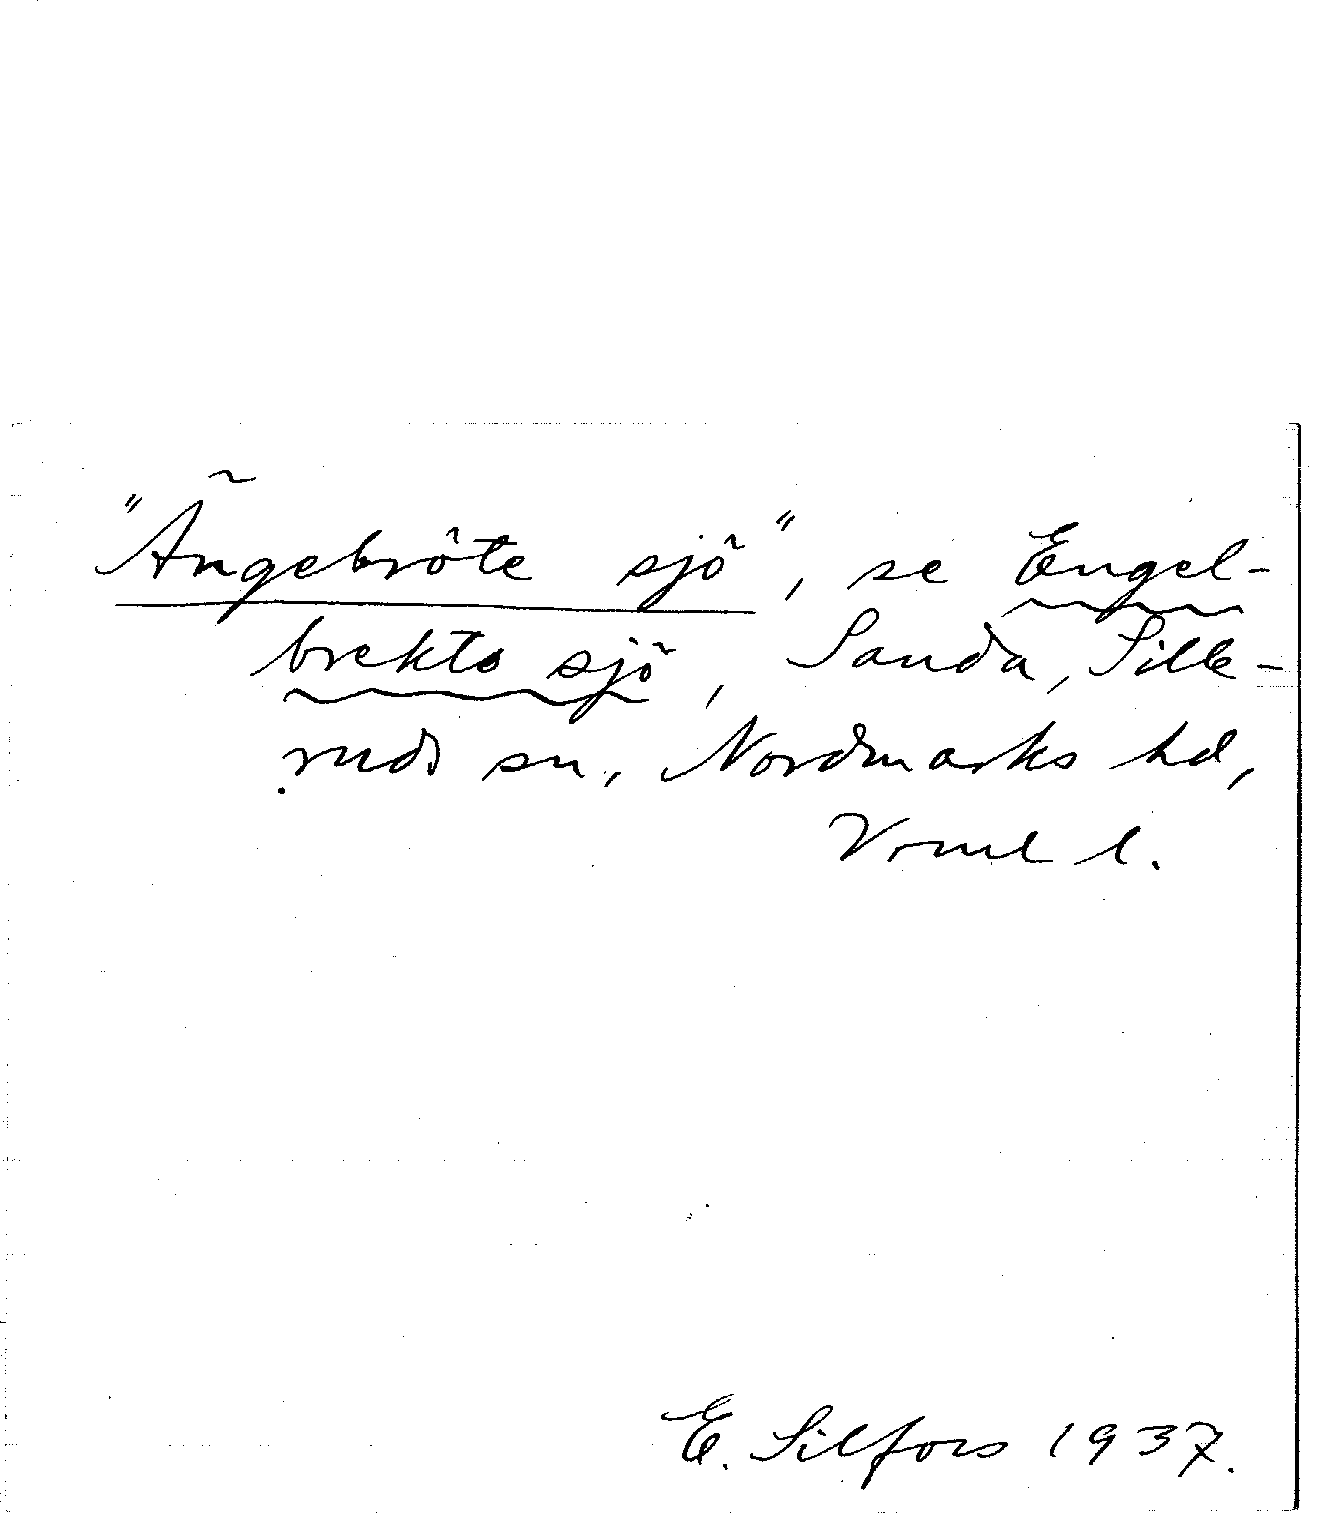 "Ängebröte sjö", se Engel-
brekts sjö, Sanda, Sille-
ruds sn, Nordmarks hd,
Vrml l.
E. Silfors 1937.